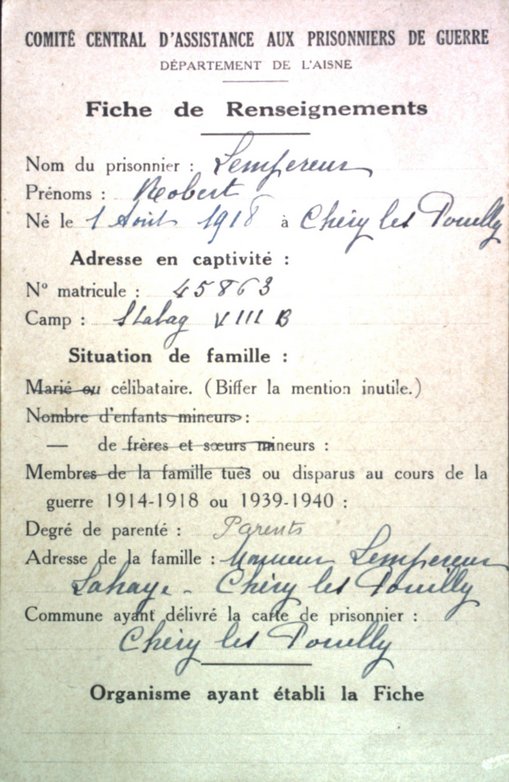 COMITÉ CENTRAL D'ASSISTANCE AUX PRISONNIERS DE GUERRE
DÉPARTEMENT DE L'AISNE
Fiche de Renseignements
Nom du prisonnier : Lempereur
Prénoms : Robert
Né le 1 Août 1918 à Chéry les Pouilly
Adresse en captivité :
N° matricule : 45863
Camp : Stalag VIII B
Situation de famille :
Marié ou célibataire. (Biffer la mention inutile.)
Nombre d'enfants mineurs :
— de frères et sœurs mineurs :
Membres de la famille tués ou disparus au cours de la
guerre 1914-1918 ou 1939-1940 :
Degré de parenté : Parents
Adresse de la famille : Monsieur Lempereur
Lahaye - Chéry les Pouilly
Commune ayant délivré la carte de prisonnier :
Chéry les Pouilly
Organisme ayant établi la Fiche